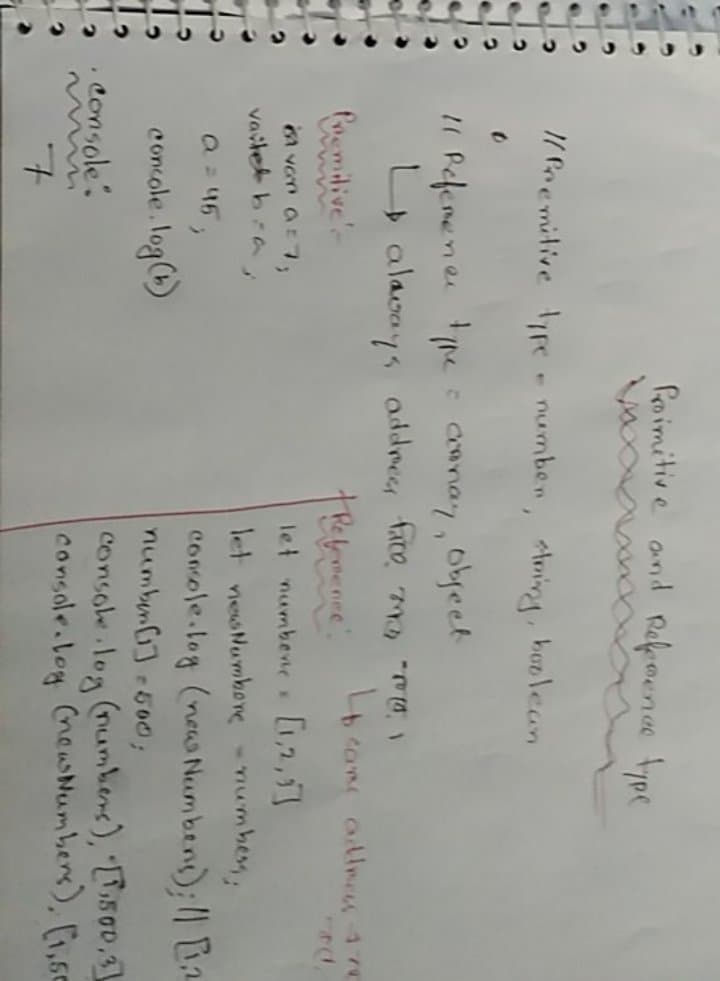 Primitive and Reference type
// Premitive type = number, string, boolean
// Reference type = array, object
↳ always address
Premitive:-
var a = 7;
b = a;
a = 45;
console.log(b)
console:
7
Reference:
↳ same address
let numbers = [1,2,3]
let newNumbers = numbers;
console.log (newNumbers); // [1,2
number[1] = 500;
console.log (numbers), [1,500,3]
console.log (newNumbers), [1,50